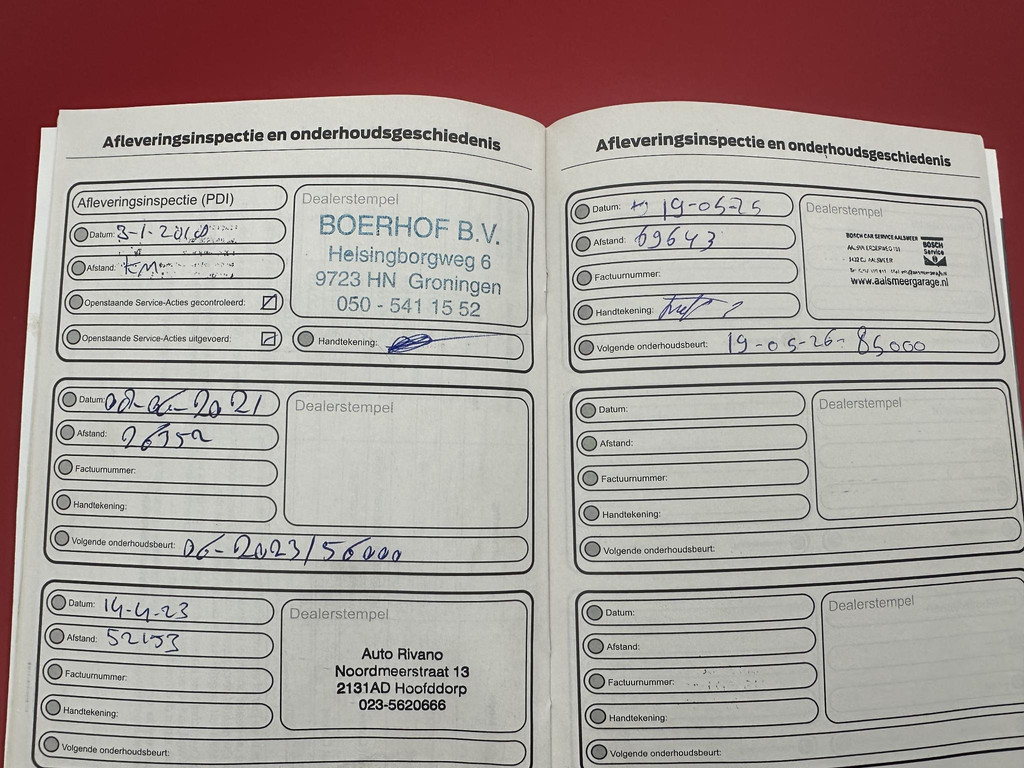 Afleveringsinspectie en onderhoudsgeschiedenis
Afleveringsinspectie (PDI)
Datum: 3-1-2018
Afstand: KM
Openstaande Service-Acties gecontroleerd:
Openstaande Service-Acties uitgevoerd:
Dealerstempel
BOERHOF B.V.
Helsingborgweg 6
9723 HN Groningen
050 - 541 15 52
Handtekening:
Datum: 08-06-2021
Afstand:
Factuurnummer:
Handtekening:
Volgende onderhoudsbeurt: 06-2023/56000
Dealerstempel
Datum: 14-4-23
Afstand: 52153
Factuurnummer:
Handtekening:
Volgende onderhoudsbeurt:
Dealerstempel
Auto Rivano
Noordmeerstraat 13
2131AD Hoofddorp
023-5620666
Afleveringsinspectie en onderhoudsgeschiedenis
Datum: 19-05-25
Afstand: 69643
Factuurnummer:
Handtekening:
Volgende onderhoudsbeurt: 19-05-26- 85000
Dealerstempel
BOSCH CAR SERVICE AALSMEER
AALSMEER
www.aalsmeergarage.nl
BOSCH
Service
Datum:
Afstand:
Factuurnummer:
Handtekening:
Volgende onderhoudsbeurt:
Dealerstempel
Datum:
Afstand:
Factuurnummer:
Handtekening:
Volgende onderhoudsbeurt:
Dealerstempel